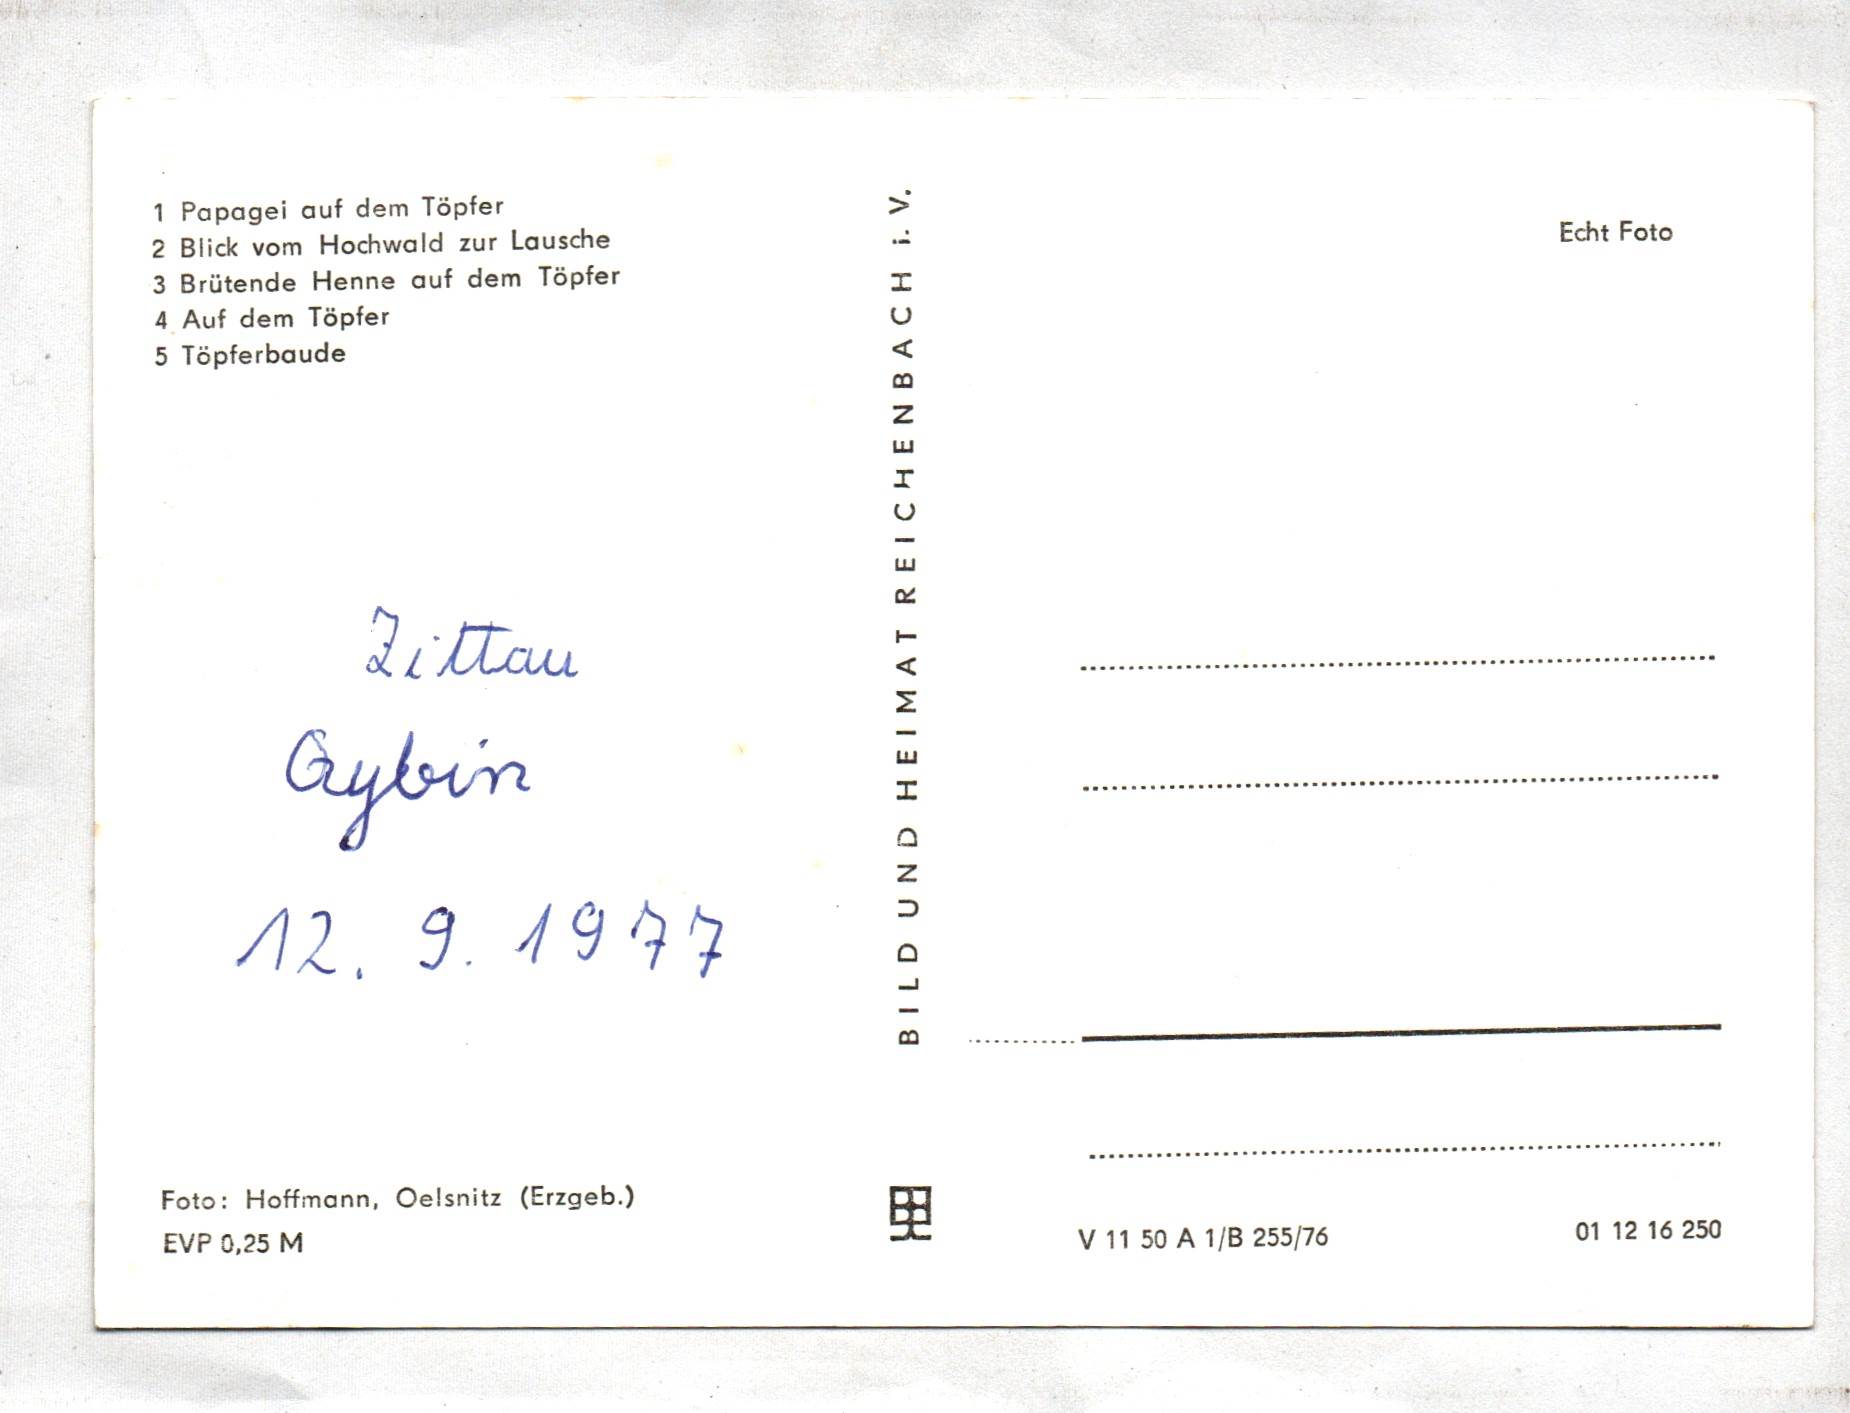 1 Papagei auf dem Töpfer
2 Blick vom Hochwald zur Lausche
3 Brütende Henne auf dem Töpfer
4 Auf dem Töpfer
5 Töpferbaude
Zittau
Oybin
12. 9. 1977
Foto: Hoffmann, Oelsnitz (Erzgeb.)
EVP 0,25 M
BILD UND HEIMAT REICHENBACH i. V.
Echt Foto
V 11 50 A 1/B 255/76
01 12 16 250